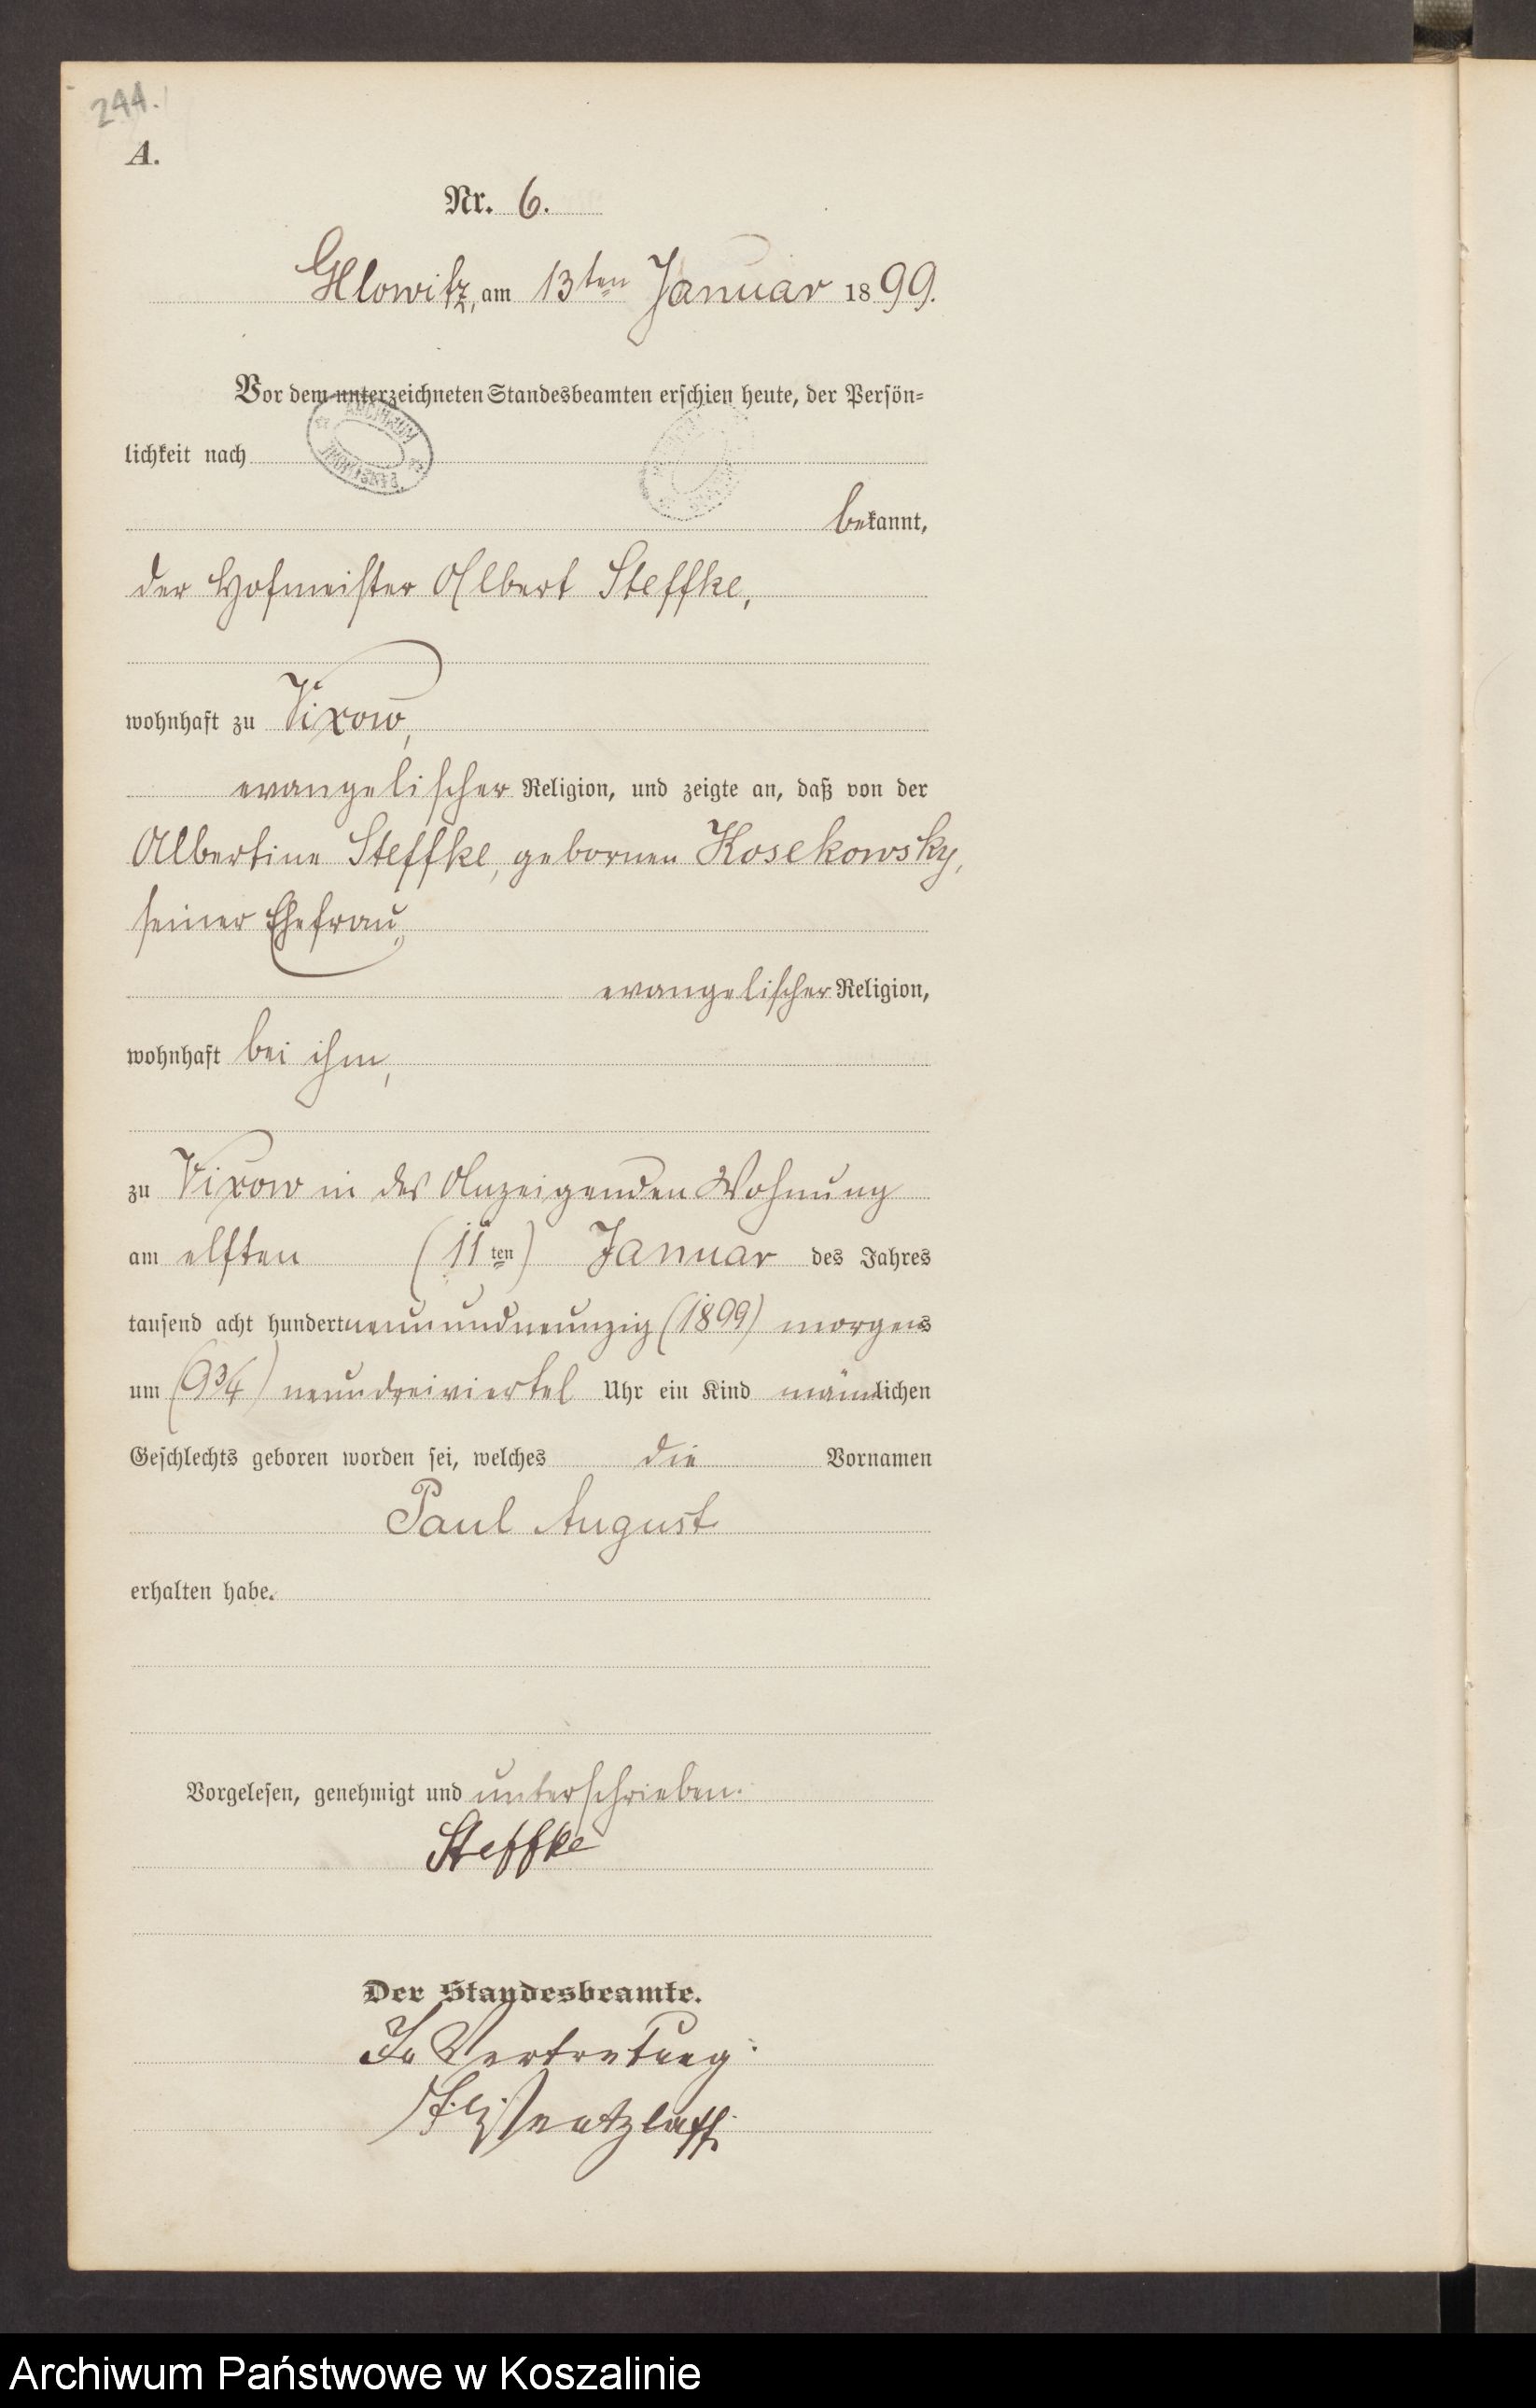 244.
A.
Nr. 6.
Glowitz, am 13ten Januar 1899.
Vor dem unterzeichneten Standesbeamten erschien heute, der Persön-
lichkeit nach
ARCHIWUM
bekannt,
der Hofmeister Albert Steffke,
wohnhaft zu Vixow,
evangelischer Religion, und zeigte an, daß von der
Albertine Steffke, gebornen Kosekowsky,
seiner Ehefrau,
evangelischer Religion,
wohnhaft bei ihm,
zu Vixow in des Anzeigenden Wohnung
am elften (11ten) Januar des Jahres
tausend acht hundert neunundneunzig (1899) morgens
um (9 3/4) neundreiviertel Uhr ein Kind männlichen
Geschlechts geboren worden sei, welches die Vornamen
Paul August
erhalten habe.
Vorgelesen, genehmigt und unterschrieben.
Steffke
Der Standesbeamte.
In Vertretung:
Archiwum Państwowe w Koszalinie